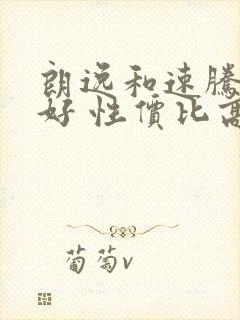 朗逸和速騰
好 性價比高
葡萄v